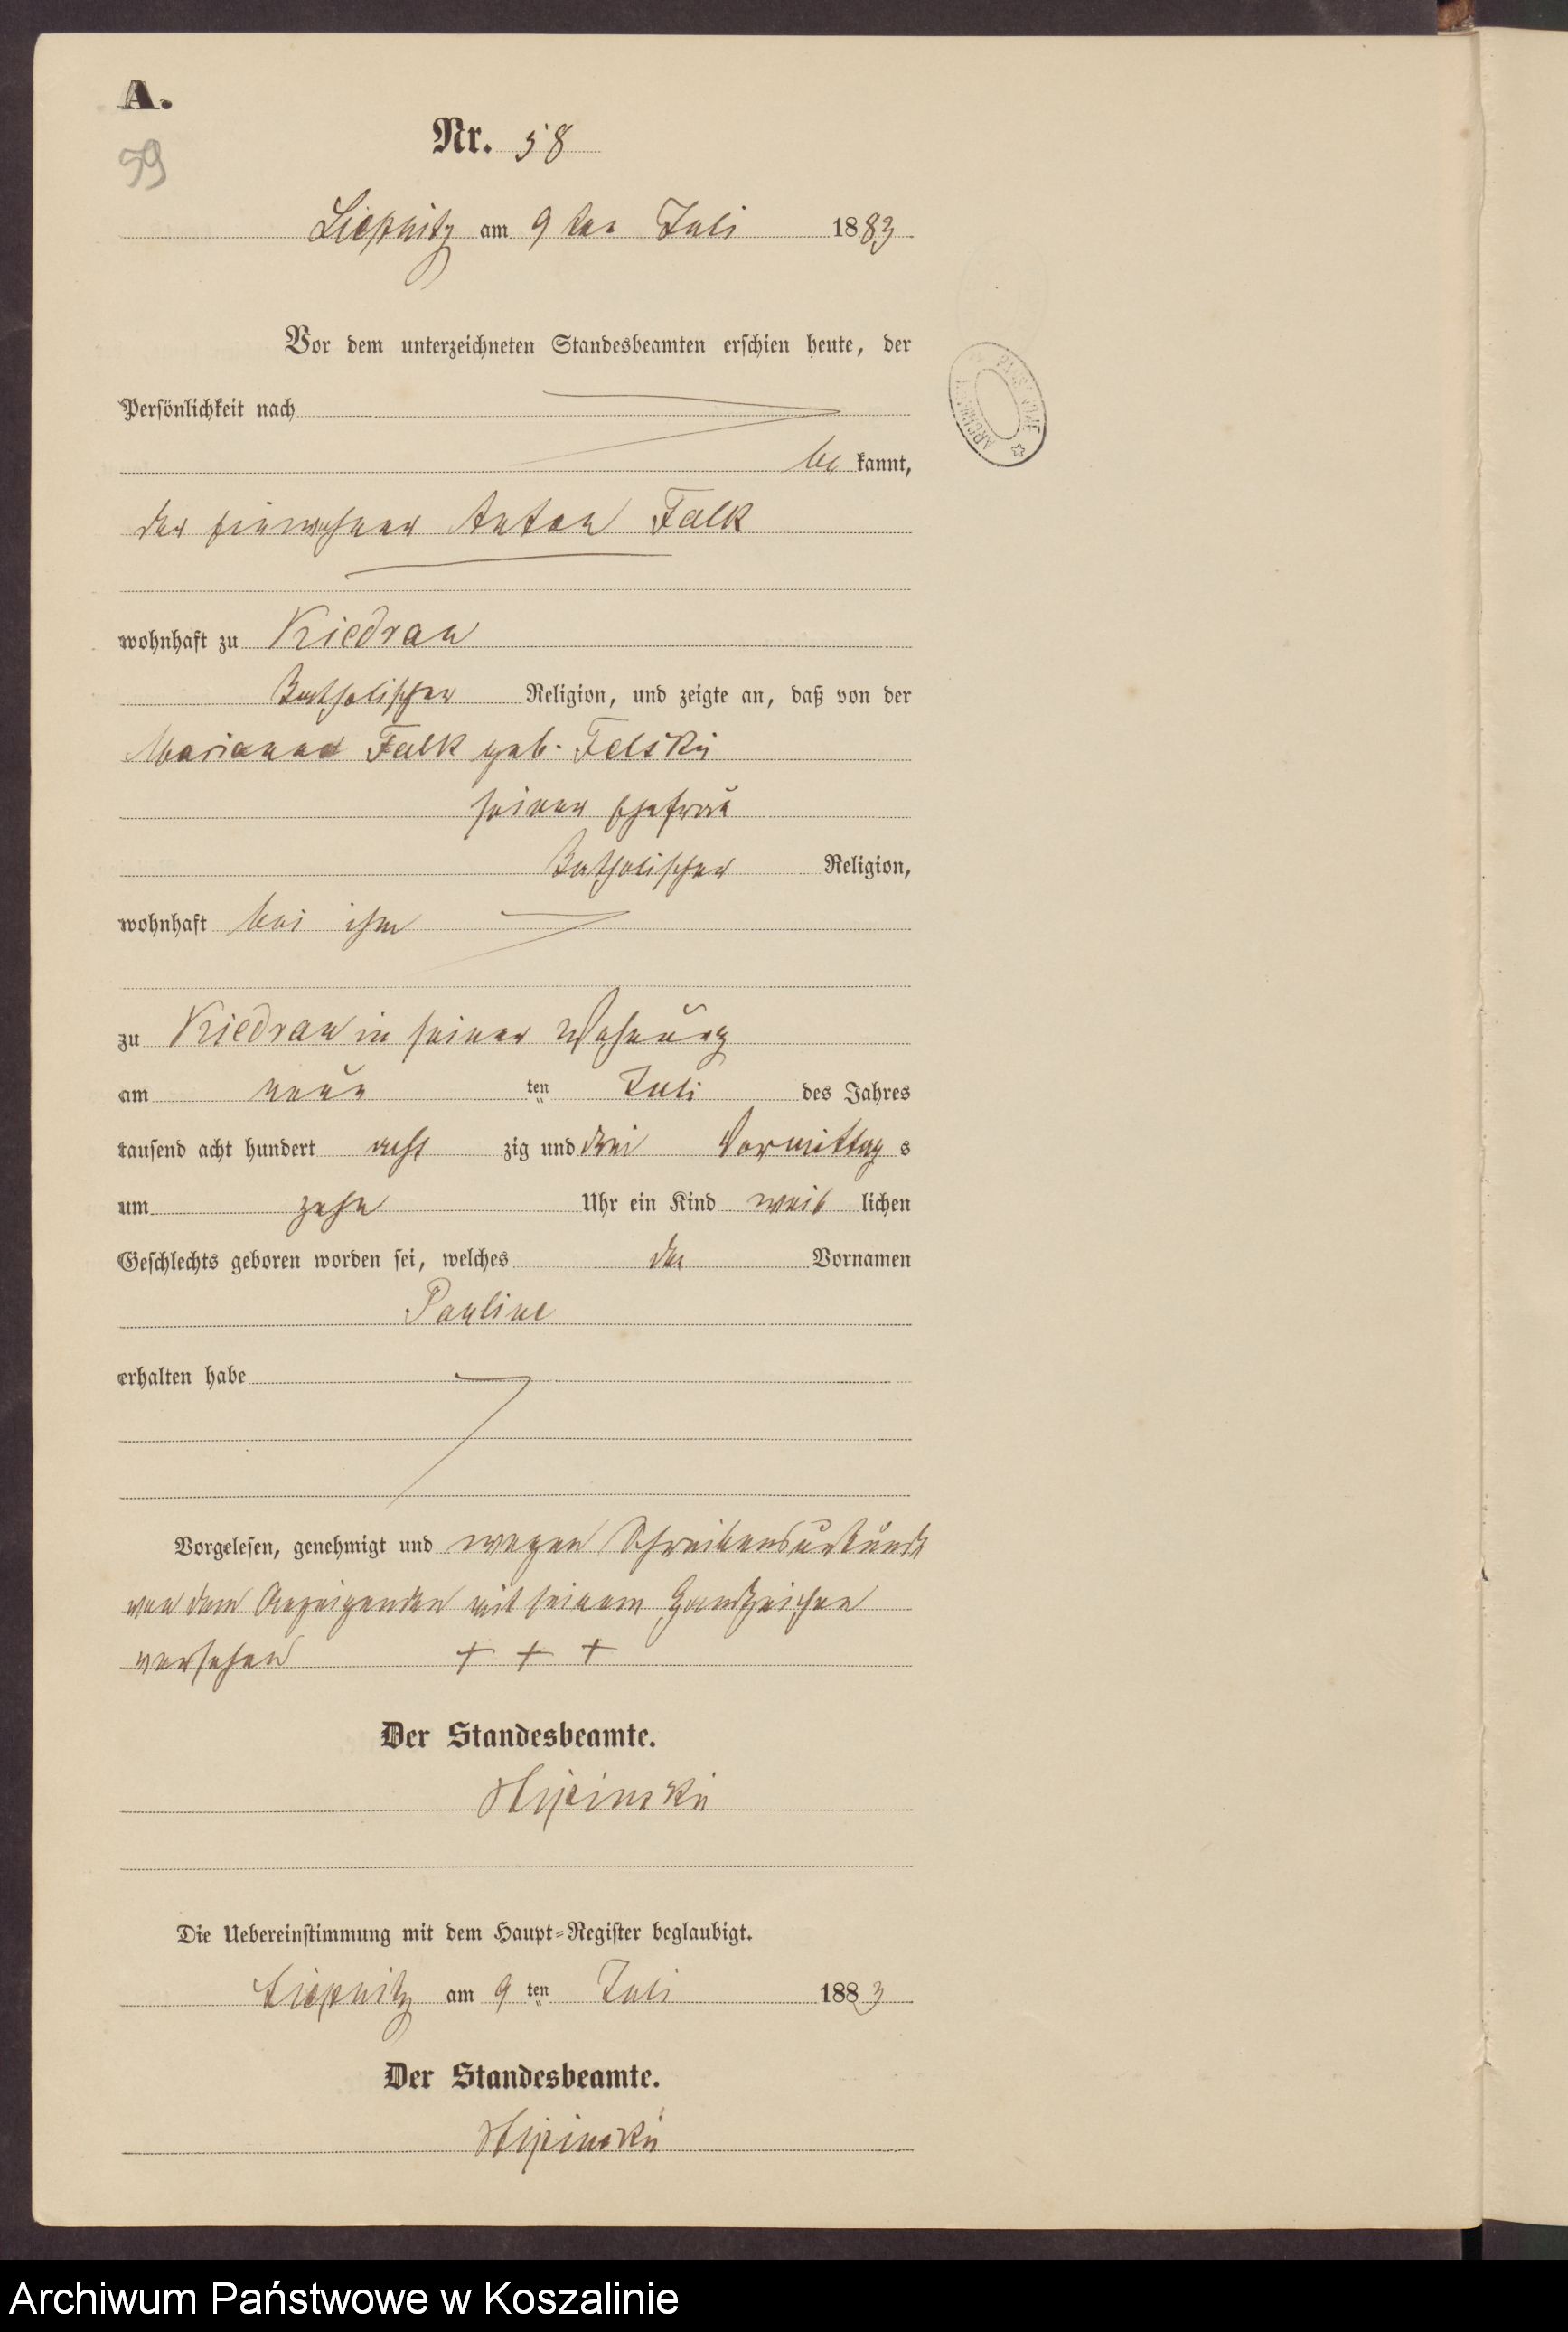 A.
59
Nr. 58
Liepnitz am 9 ten Juli 1883
Vor dem unterzeichneten Standesbeamten erschien heute, der
Persönlichkeit nach
be kannt,
der Einwohner Anton Falk
wohnhaft zu Kiedrau
Katholischer Religion, und zeigte an, daß von der
Marianna Falk geb. Felski
seiner Ehefrau
Katholischer Religion,
wohnhaft bei ihm
zu Kiedrau in seiner Wohnung
am neun ten Juli des Jahres
tausend acht hundert acht zig und drei Vormittag s
um zehn Uhr ein Kind weib lichen
Geschlechts geboren worden sei, welches den Vornamen
Pauline
erhalten habe
Vorgelesen, genehmigt und wegen Schreibensunkunde
von dem Anzeigenden mit seinem Handzeichen
versehen + + +
Der Standesbeamte.
Die Uebereinstimmung mit dem Haupt-Register beglaubigt.
Liepnitz am 9 ten Juli 1883
Der Standesbeamte.
Archiwum Państwowe w Koszalinie